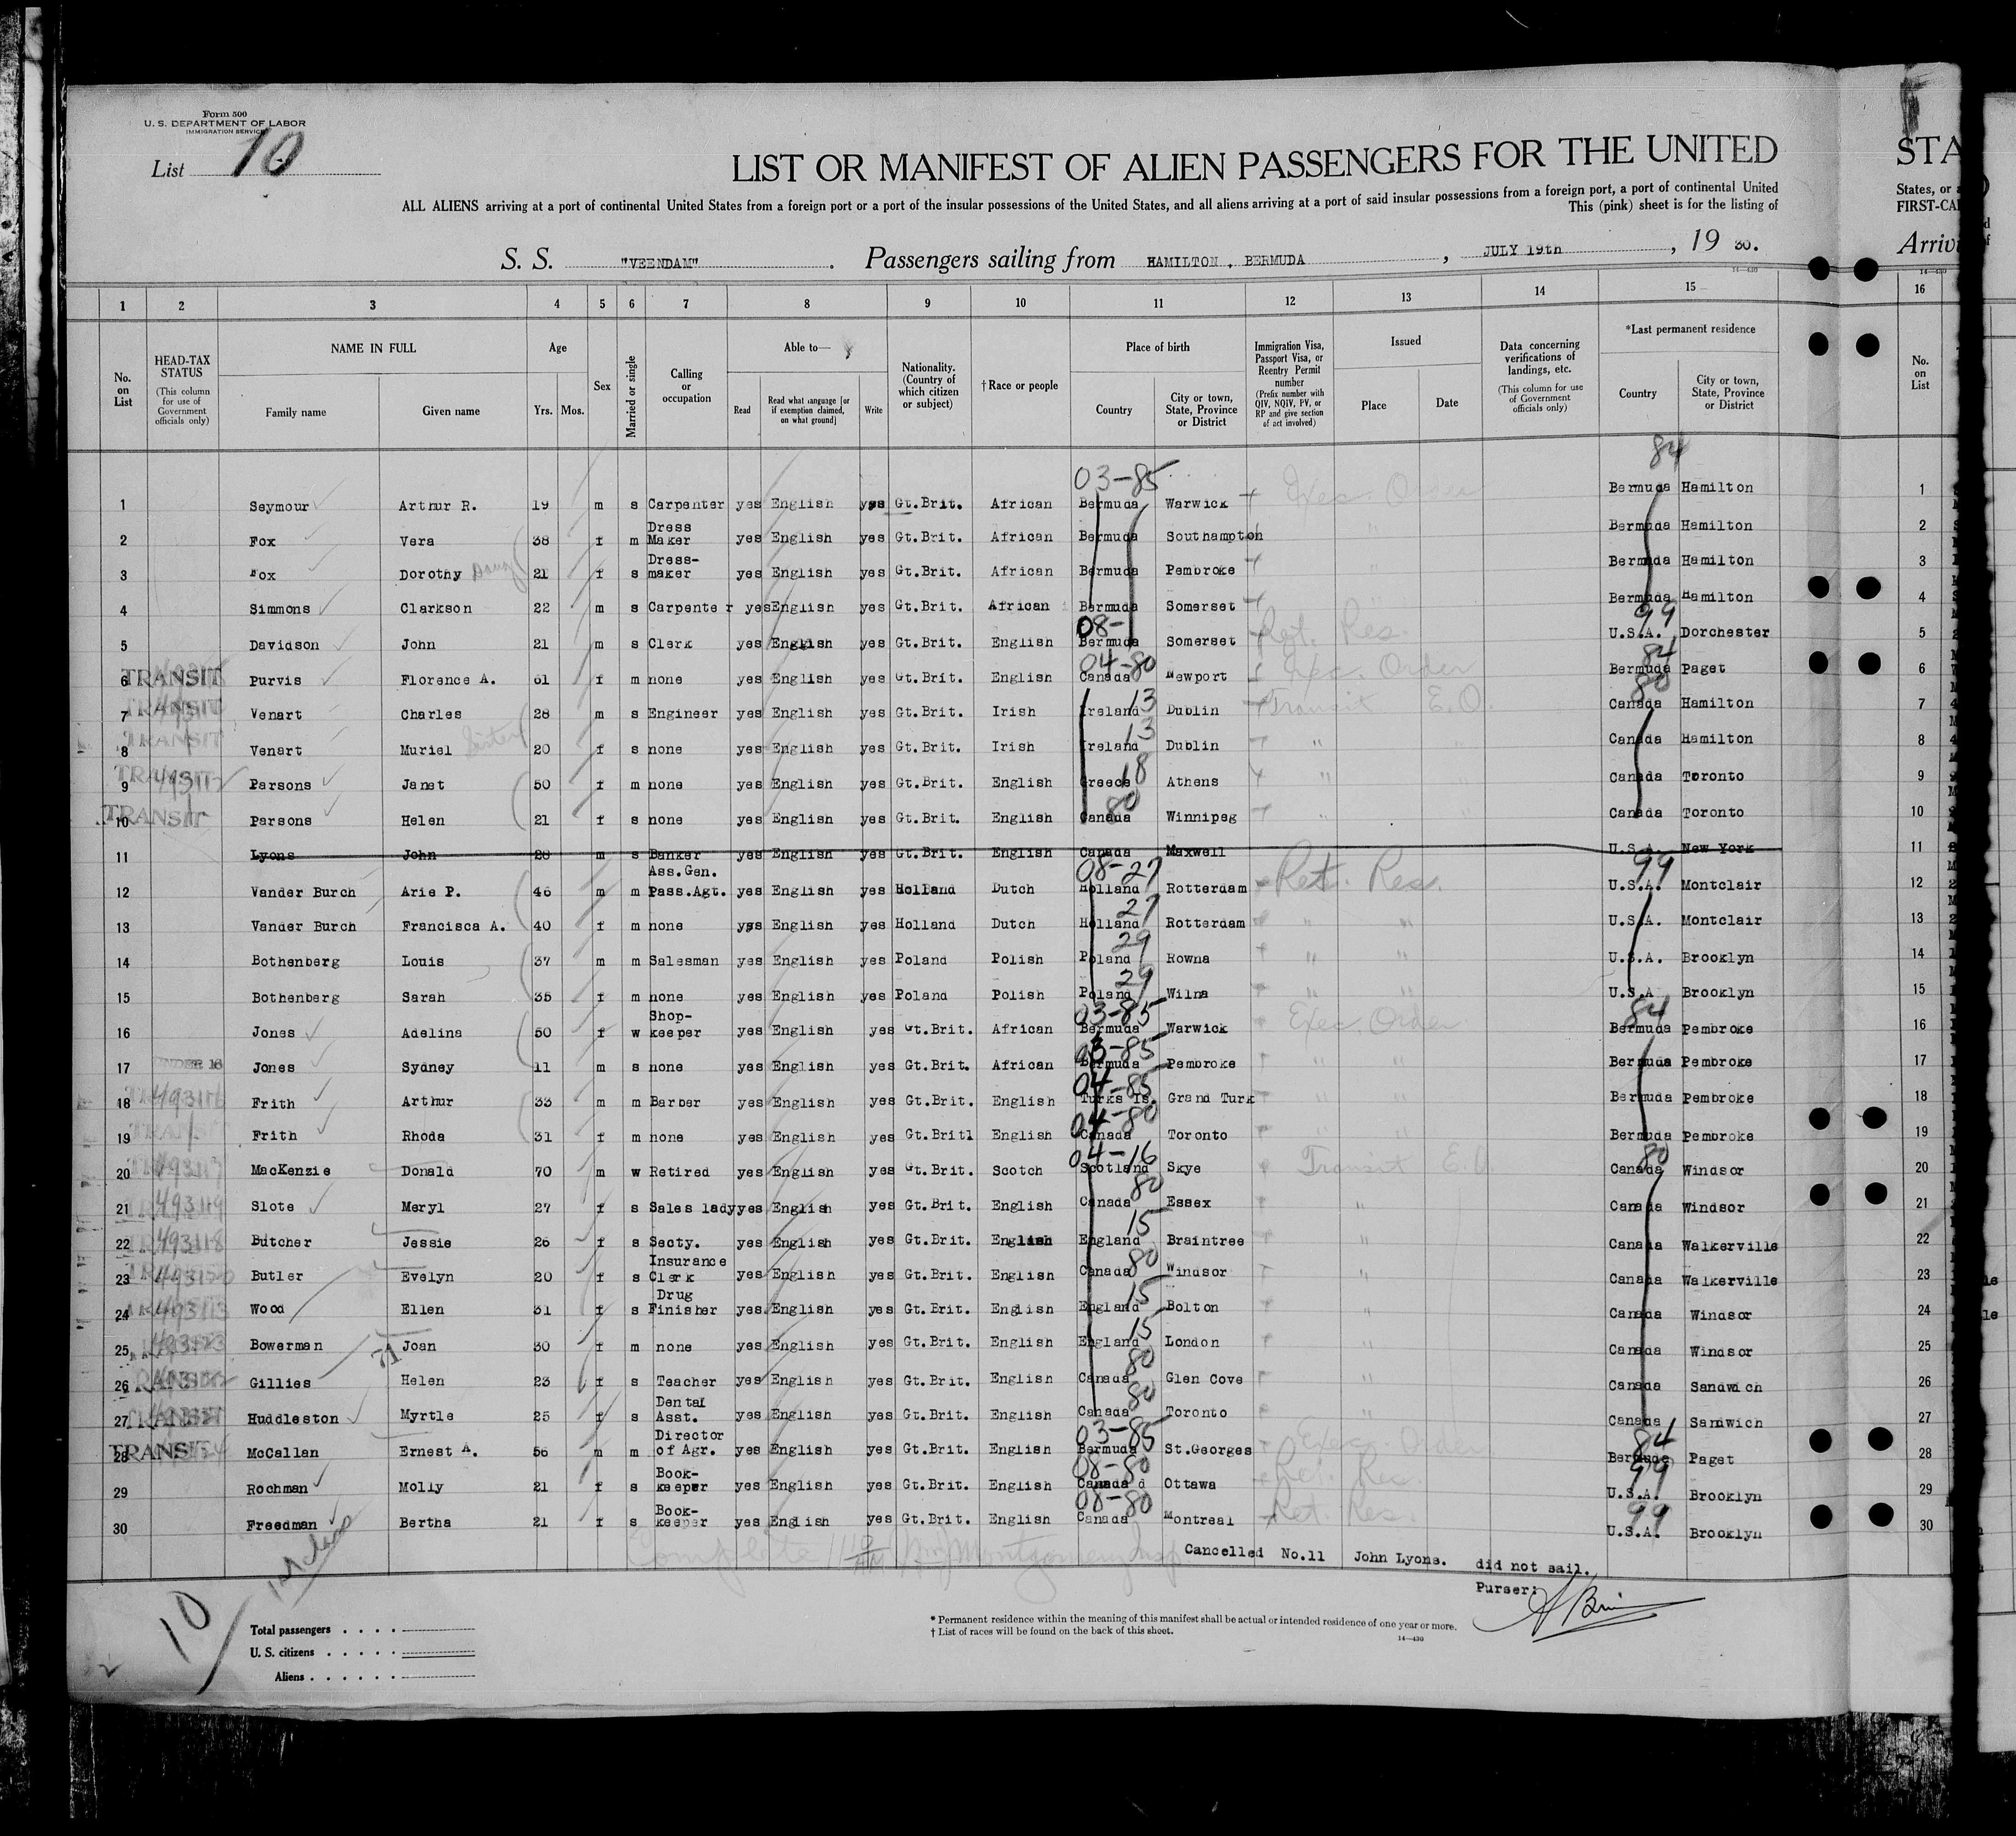 Form 500
U. S. DEPARTMENT OF LABOR
IMMIGRATION SERVICE
List 10
LIST OR MANIFEST OF ALIEN PASSENGERS FOR THE UNITED STA
ALL ALIENS arriving at a port of continental United States from a foreign port or a port of the insular possessions of the United States, and all aliens arriving at a port of said insular possessions from a foreign port, a port of continental United States, or
This (pink) sheet is for the listing of FIRST-CA
S. S. "VEENDAM" . Passengers sailing from HAMILTON , BERMUDA , JULY 19th , 19 30. Arriv
1 2 3 4 5 6 7 8 9 10 11 12 13 14 15 16
No. on List
HEAD-TAX STATUS
(This column for use of Government officials only)
NAME IN FULL
Family name Given name
Age
Yrs. Mos.
Sex
Married or single
Calling or occupation
Able to—
Read
Read what language [or if exemption claimed, on what ground]
Write
Nationality. (Country of which citizen or subject)
† Race or people
Place of birth
Country
City or town, State, Province or District
Immigration Visa, Passport Visa, or Reentry Permit number
(Prefix number with QIV, NQIV, PV, or RP and give section of act involved)
Issued
Place Date
Data concerning verifications of landings, etc.
(This column for use of Government officials only)
*Last permanent residence
Country
City or town, State, Province or District
No. on List
84
03-85
1 Seymour Arthur R. 19 m s Carpenter yes English yes Gt.Brit. African Bermuda Warwick Exec. Order Bermuda Hamilton 1
2 Fox Vera 38 f m Dress Maker yes English yes Gt.Brit. African Bermuda Southampton " Bermuda Hamilton 2
3 Fox Dorothy 21 f s Dress-maker yes English yes Gt.Brit. African Bermuda Pembroke " Bermuda Hamilton 3
4 Simmons Clarkson 22 m s Carpenter yes English yes Gt.Brit. African Bermuda Somerset Bermuda Hamilton 4
08- 99
5 Davidson John 21 m s Clerk yes English yes Gt.Brit. English Bermuda Somerset Ret. Res. U.S.A. Dorchester 5
04-80 84
TRANSIT 6 Purvis Florence A. 61 f m none yes English yes Gt.Brit. English Canada Newport Exec. Order Bermuda Paget 6
13 80
TRANSIT 7 Venart Charles 28 m s Engineer yes English yes Gt.Brit. Irish Ireland Dublin Transit E.O. Canada Hamilton 7
13
TRANSIT 8 Venart Muriel Sister 20 f s none yes English yes Gt.Brit. Irish Ireland Dublin " Canada Hamilton 8
18
TRANSIT 9 Parsons Janet 50 f m none yes English yes Gt.Brit. English Greece Athens " Canada Toronto 9
80
TRANSIT 10 Parsons Helen 21 f s none yes English yes Gt.Brit. English Canada Winnipeg " Canada Toronto 10
11 Lyons John 28 m s Banker yes English yes Gt.Brit. English Canada Maxwell U.S.A. New York 11
08-27 99
12 Vander Burch Arie P. 46 m m Ass.Gen. Pass.Agt. yes English yes Holland Dutch Holland Rotterdam Ret. Res. U.S.A. Montclair 12
27
13 Vander Burch Francisca A. 40 f m none yes English yes Holland Dutch Holland Rotterdam " " U.S.A. Montclair 13
29
14 Bothenberg Louis 37 m m Salesman yes English yes Poland Polish Poland Rowna " " U.S.A. Brooklyn 14
29
15 Bothenberg Sarah 35 f m none yes English yes Poland Polish Poland Wilna " " U.S.A Brooklyn 15
03-85 84
16 Jones Adelina 50 f w Shop-keeper yes English yes Gt.Brit. African Bermuda Warwick Exec. Order Bermuda Pembroke 16
03-85
17 UNDER 16 Jones Sydney 11 m s none yes English yes Gt.Brit. African Bermuda Pembroke " " Bermuda Pembroke 17
04-85
18 Frith Arthur 33 m m Barber yes English yes Gt.Brit. English Turks Is. Grand Turk " " Bermuda Pembroke 18
04-80
19 TRANSIT Frith Rhoda 31 f m none yes English yes Gt.Britl English Canada Toronto " " Bermuda Pembroke 19
04-16 80
20 MacKenzie Donald 70 m w Retired yes English yes Gt.Brit. Scotch Scotland Skye Transit E.O. Canada Windsor 20
80
21 493119 Slote Meryl 27 f s Sales lady yes English yes Gt.Brit. English Canada Essex " Canada Windsor 21
15
22 493118 Butcher Jessie 26 f s Secty. yes English yes Gt.Brit. English England Braintree Canada Walkerville 22
80
23 Butler Evelyn 20 f s Insurance Clerk yes English yes Gt.Brit. English Canada Windsor " Canada Walkerville 23
15
24 Wood Ellen 31 f s Drug Finisher yes English yes Gt.Brit. English England Bolton " Canada Windsor 24
15
25 Bowerman Joan 30 f m none yes English yes Gt.Brit. English England London " Canada Windsor 25
80
26 Gillies Helen 23 f s Teacher yes English yes Gt.Brit. English Canada Glen Cove " Canada Sandwich 26
80
27 TRANSIT Huddleston Myrtle 25 f s Dental Asst. yes English yes Gt.Brit. English Canada Toronto " Canada Sandwich 27
03-85 84
TRANSIT 28 McCallan Ernest A. 56 m m Director of Agr. yes English yes Gt.Brit. English Bermuda St.Georges Exec. Order Bermuda Paget 28
08-80 99
29 Rochman Molly 21 f s Book-keeper yes English yes Gt.Brit. English Canada d Ottawa Ret. Res. U.S.A. Brooklyn 29
08-80 99
30 Freedman Bertha 21 f s Book-keeper yes English yes Gt.Brit. English Canada Montreal Ret. Res. U.S.A. Brooklyn 30
Complete Montgomery Insp
Cancelled No.11 John Lyons. did not sail.
Purser:
10
Total passengers . . . .
U. S. citizens . . . . .
Aliens . . . . . .
* Permanent residence within the meaning of this manifest shall be actual or intended residence of one year or more.
† List of races will be found on the back of this sheet.
14—430